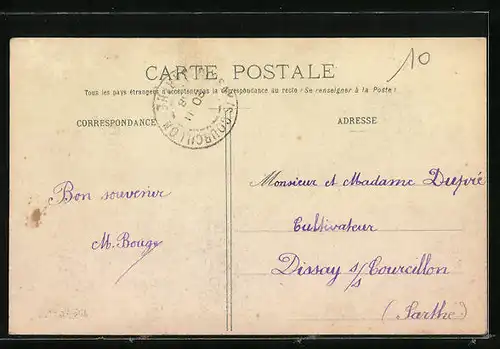 10
CARTE POSTALE
Tous les pays étrangers n'acceptent pas la correspondance au recto (Se renseigner à la Poste)
CORRESPONDANCE
ADRESSE
COURCILLON
Bon souvenir
M. Bouge
Monsieur et Madame Dupré
Cultivateur
Dissay s/s Courcillon
(Sarthe)